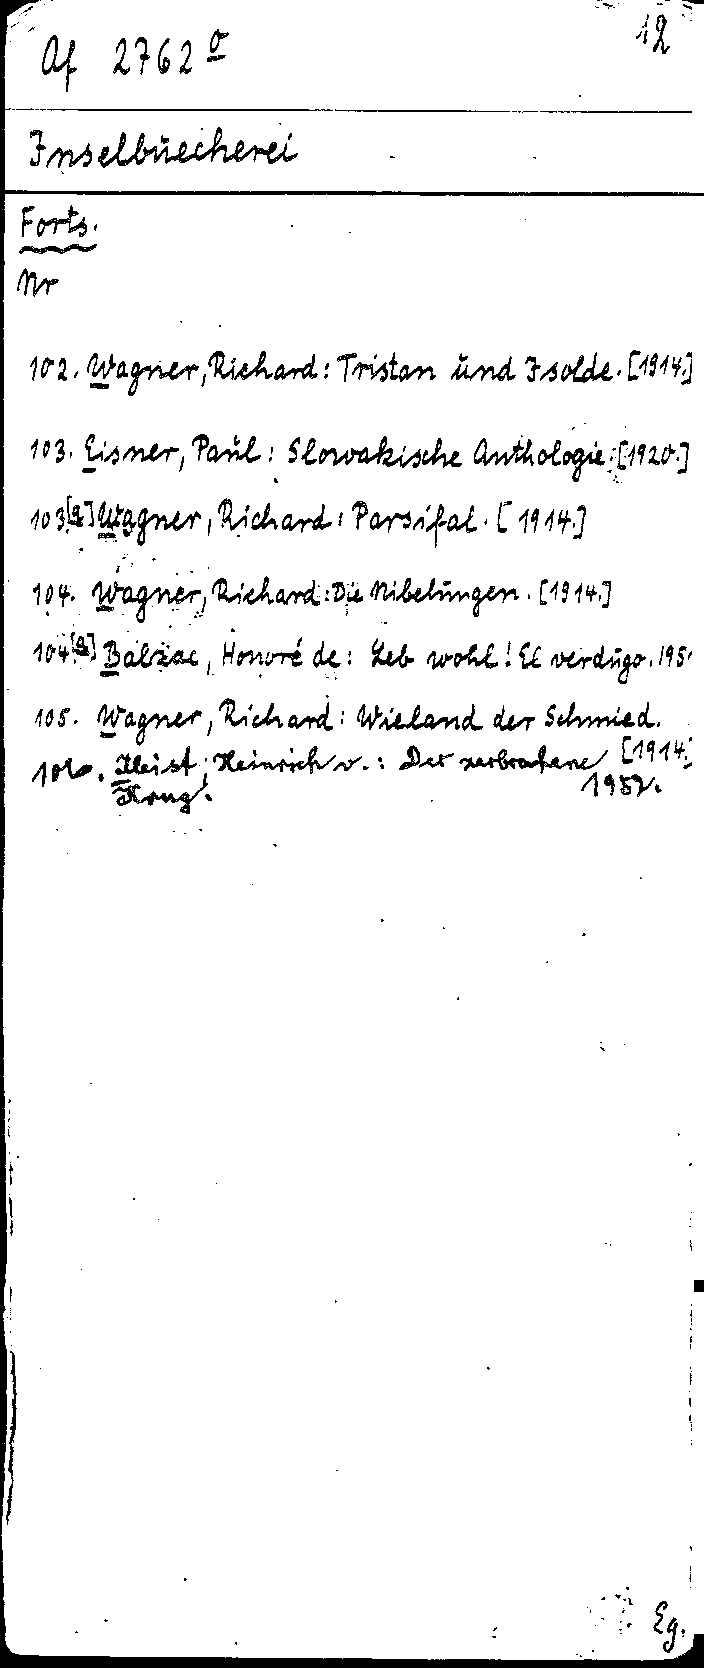 Af 2762 º
12
Inselbuecherei
Forts.
Nr
102. Wagner, Richard: Tristan und Isolde. [1914.]
103. Eisner, Paul: Slowakische Anthologie. [1920.]
103[a] Wagner, Richard: Parsifal. [1914.]
104. Wagner, Richard: Die Nibelungen. [1914.]
104[a] Balzac, Honoré de: Leb wohl! El verdugo. 195
105. Wagner, Richard: Wieland der Schmied.
[1914.]
106. Kleist, Heinrich v.: Der zerbrochene
Krug. 1952.
Eg.